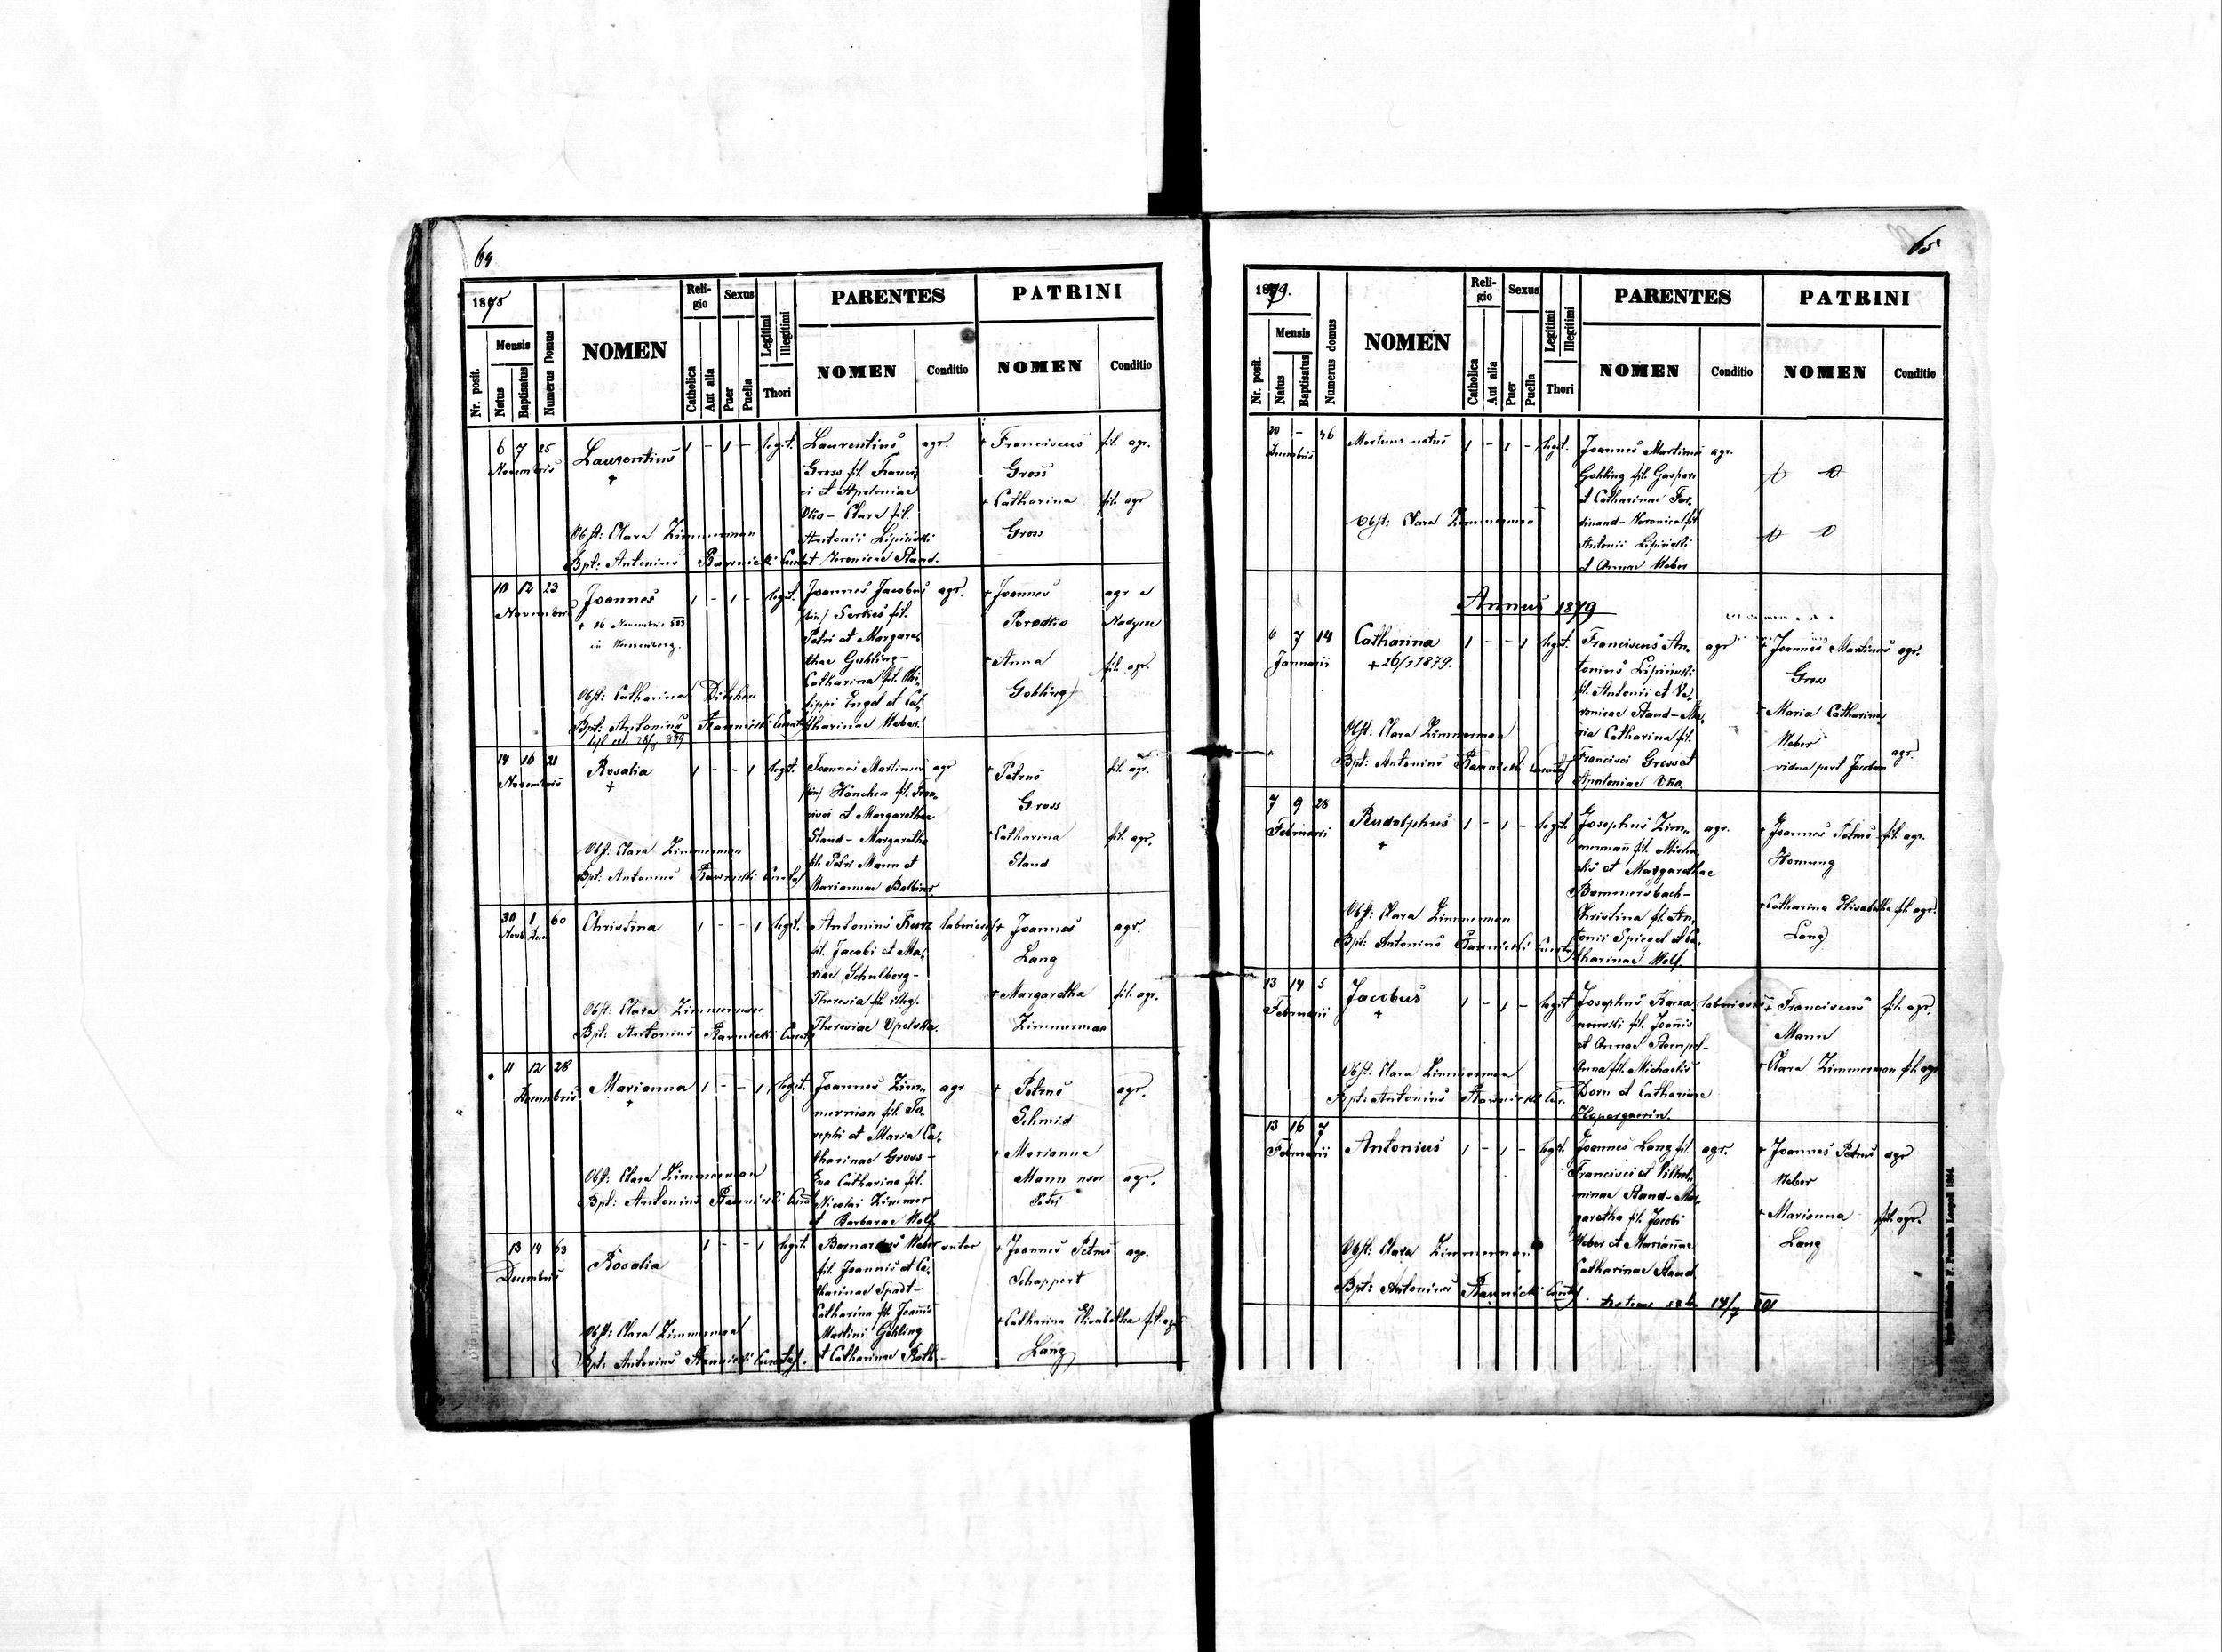 64
1878
Nr. posit.
Mensis
Natus
Baptisatus
Numerus Domus
NOMEN
Reli-
gio
Catholica
Aut alia
Sexus
Puer
Puella
Legitimi
Illegitimi
Thori
PARENTES
NOMEN
Conditio
PATRINI
NOMEN
Conditio
6 7 25 Laurentius 1 - 1 - legit. Laurentius agr. + Franciscus fil. agr.
Novembris
+
Gross fil. Francis-
Gross
ci et Apoloniae
+ Catharina fil. agr
Oko - Clara fil.
Obst: Clara Zimmerman
Antonii Lipiński
Gross
Bpt: Antonius Curat
et Veronicae Staud.
10 12 23 Joannes 1 - 1 - legit. Joannes Jacobus agr. + Joannes agr
Novembris
+ 16 Novembris
in Weissenberg.
(bin) Serkes fil.
Perodko
Petri et Margare-
thae Gohling -
+ Anna fil. agr.
Catharina fil. Phi-
Gohling
Obst: Catharina
lippi Engel et Ca-
Bpt: Antonius Curat
tharinae Weber.
14 16 21 Rosalia 1 - - 1 legit. Joannes Martinus agr + Petrus fil. agr.
Novembris
+
(bin) Hönchen fil. Fran-
Gross
cisci et Margarethae
Staud - Margaretha
+ Catharina fil. agr.
Obst: Clara Zimmerman
fil. Petri Mann et
Staud
Bpt: Antonius Curatus
Mariannae Balbiner
30 1 60 Christina 1 - - 1 legit. Antonius Kurz + Joannes agr.
fil. Jacobi et Ma-
Lang
riae Schulberg -
Theresia fil. illeg.
+ Margaretha fil. agr.
Obst: Clara Zimmerman
Theresiae Opolska.
Zimmerman
Bpt: Antonius Curatus
11 12 28 Marianna 1 - - 1 legit. Joannes Zim- agr + Petrus agr.
Decembris
+
merman fil. Jo-
Schmid
sephi et Maria Ca-
tharinae Gross -
+ Marianna
Obst: Clara Zimmerman
Eva Catharina fil.
Mann uxor agr.
Bpt: Antonius Curat
Nicolai Zimmer
Petri
et Barbarae Wolf
13 14 63 Rosalia 1 - - 1 legit. Bernardus Weber sutor + Joannes Petrus agr.
Decembris
fil. Joannis et Ca-
Schappert
tharinae Spast -
Catharina fil. Joannis
+ Catharina Elisabetha fil. agr
Obst: Clara Zimmerman
Martini Gohling
Lang
Bpt: Antonius Curatus.
et Catharinae Roth -
65
1879.
Nr. posit.
Mensis
Natus
Baptisatus
Numerus domus
NOMEN
Reli-
gio
Catholica
Aut alia
Sexus
Puer
Puella
Legitimi
Illegitimi
Thori
PARENTES
NOMEN
Conditio
PATRINI
NOMEN
Conditio
20 - 46 Mortuus natus 1 - 1 - legit. Joannes Martinus agr.
Decembris
Gohling fil. Gaspari
et Catharinae Fer-
Obst: Clara Zimmerman
dinand - Veronica fil
Antonii Lipiński
et Annae Weber
Annus 1879
6 7 14 Catharina 1 - - 1 legit. Franciscus An- agr + Joannes Martinus agr.
Januarii
+ 26/7 1879.
tonius Lipiński
Gross
fil. Antonii et Ve-
ronicae Staud - Ma-
+ Maria Catharina
Obst: Clara Zimmerman
ria Catharina fil.
Weber
Bpt: Antonius Curatus
Francisci Gross et
vidua post Jacobum agr.
Apoloniae Oko.
7 9 28 Rudolphus 1 - 1 - legit. Josephus Zim- agr. + Joannes Petrus fil. agr.
Februarii
+
merman fil. Micha-
Hornung
elis et Margarethae
Bommersbach -
+ Catharina Elisabetha fil. agr.
Obst: Clara Zimmerman
Christina fil. An-
Lang
Bpt: Antonius Curatus
tonii Spiegel et Ca-
tharinae Wolf.
13 14 5 Jacobus 1 - 1 - legit Josephus + Franciscus fil. agr.
Februarii
+
fil. Joannis
Mann
et Annae
Obst: Clara Zimmerman
Anna fil. Michaelis
+ Clara Zimmerman fil. agr
Bpt: Antonius Cur.
Dorn et Catharinae
13 16 7 Antonius 1 - 1 - legit. Joannes Lang fil. agr. + Joannes Petrus agr
Februarii
Francisci et Wilhel-
Weber
minae Staud - Mar-
garetha fil. Jacobi
+ Marianna fil. agr.
Obst: Clara Zimmerman
Weber et Mariannae
Lang
Catharinae Staud
Bpt: Antonius Curatus